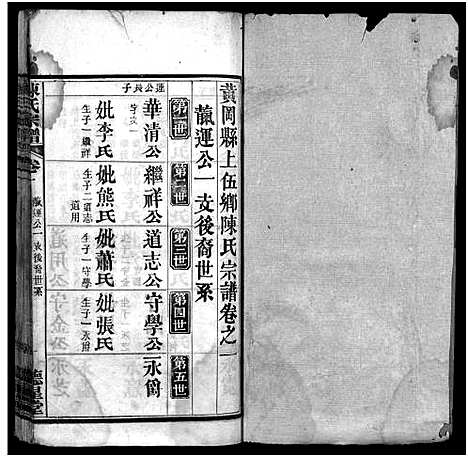 黃岡縣上伍鄉陳氏宗譜卷之一
藴運公一攴後裔世系
第一世
第二世
第三世
第四世
第五世
運公長子
華清公
繼祥公
道志公
守學公
永爵
妣李氏
生子一繼祥
妣熊氏
生子二道志
道用
妣蕭氏
生子一守學
妣張氏
生子一永爵
陳氏宗譜
卷一
藴運公一攴後裔世系
德星堂